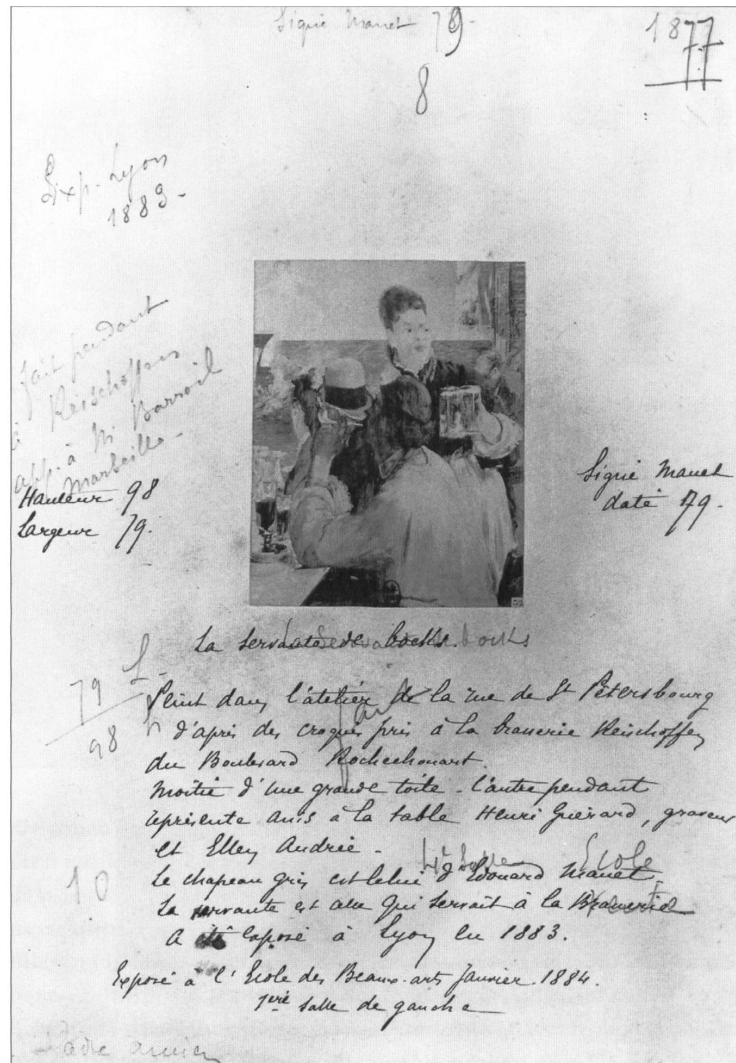 Signé Manet 79
1877
8
Exp. Lyon
1883 -
fait pendant
à Reischoffen
app. à M. Barroil
Marseille -
Hauteur 98
Largeur 79.
Signé Manet
daté 79.
La servante de bocks.
79 L
98 h
Peint dans l'atelier de la rue de St Pétersbourg
d'après des croquis pris à la brasserie Reischoffen
du Boulevard Rochechouart.
Moitié d'une grande toile - l'autre pendant
représente assis à la table Henri Guérard, graveur
et Ellen Andrée -
Ecole
Le chapeau gris est celui d'Edouard Manet
10
La servante est celle qui servait à la Brasserie
A été exposé à Lyon en 1883.
Exposé à l'Ecole des Beaux-arts Janvier 1884.
1ère salle de gauche